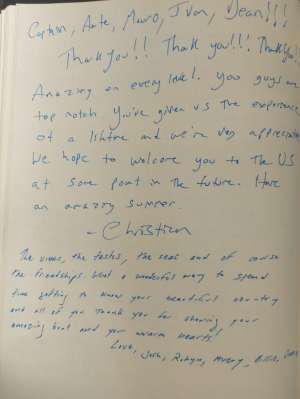 Captain, Ante, Mauro, Ivan, Dean!!!
Thank you!! Thank you!!! Thank you!
Amazing on every level. You guys are
top notch. You've given us the experience
of a lifetime and we're very appreciative
We hope to welcome you to the US
at some point in the future. Have
an amazing summer.
- Christian
The views, the tastes, the seas and of course
the friendships. What a wonderful way to spend
time getting to know your beautiful country
and all of you. Thank you for sharing your
amazing boat and your warm hearts!
Love,
Josh, Robyn, Avery,